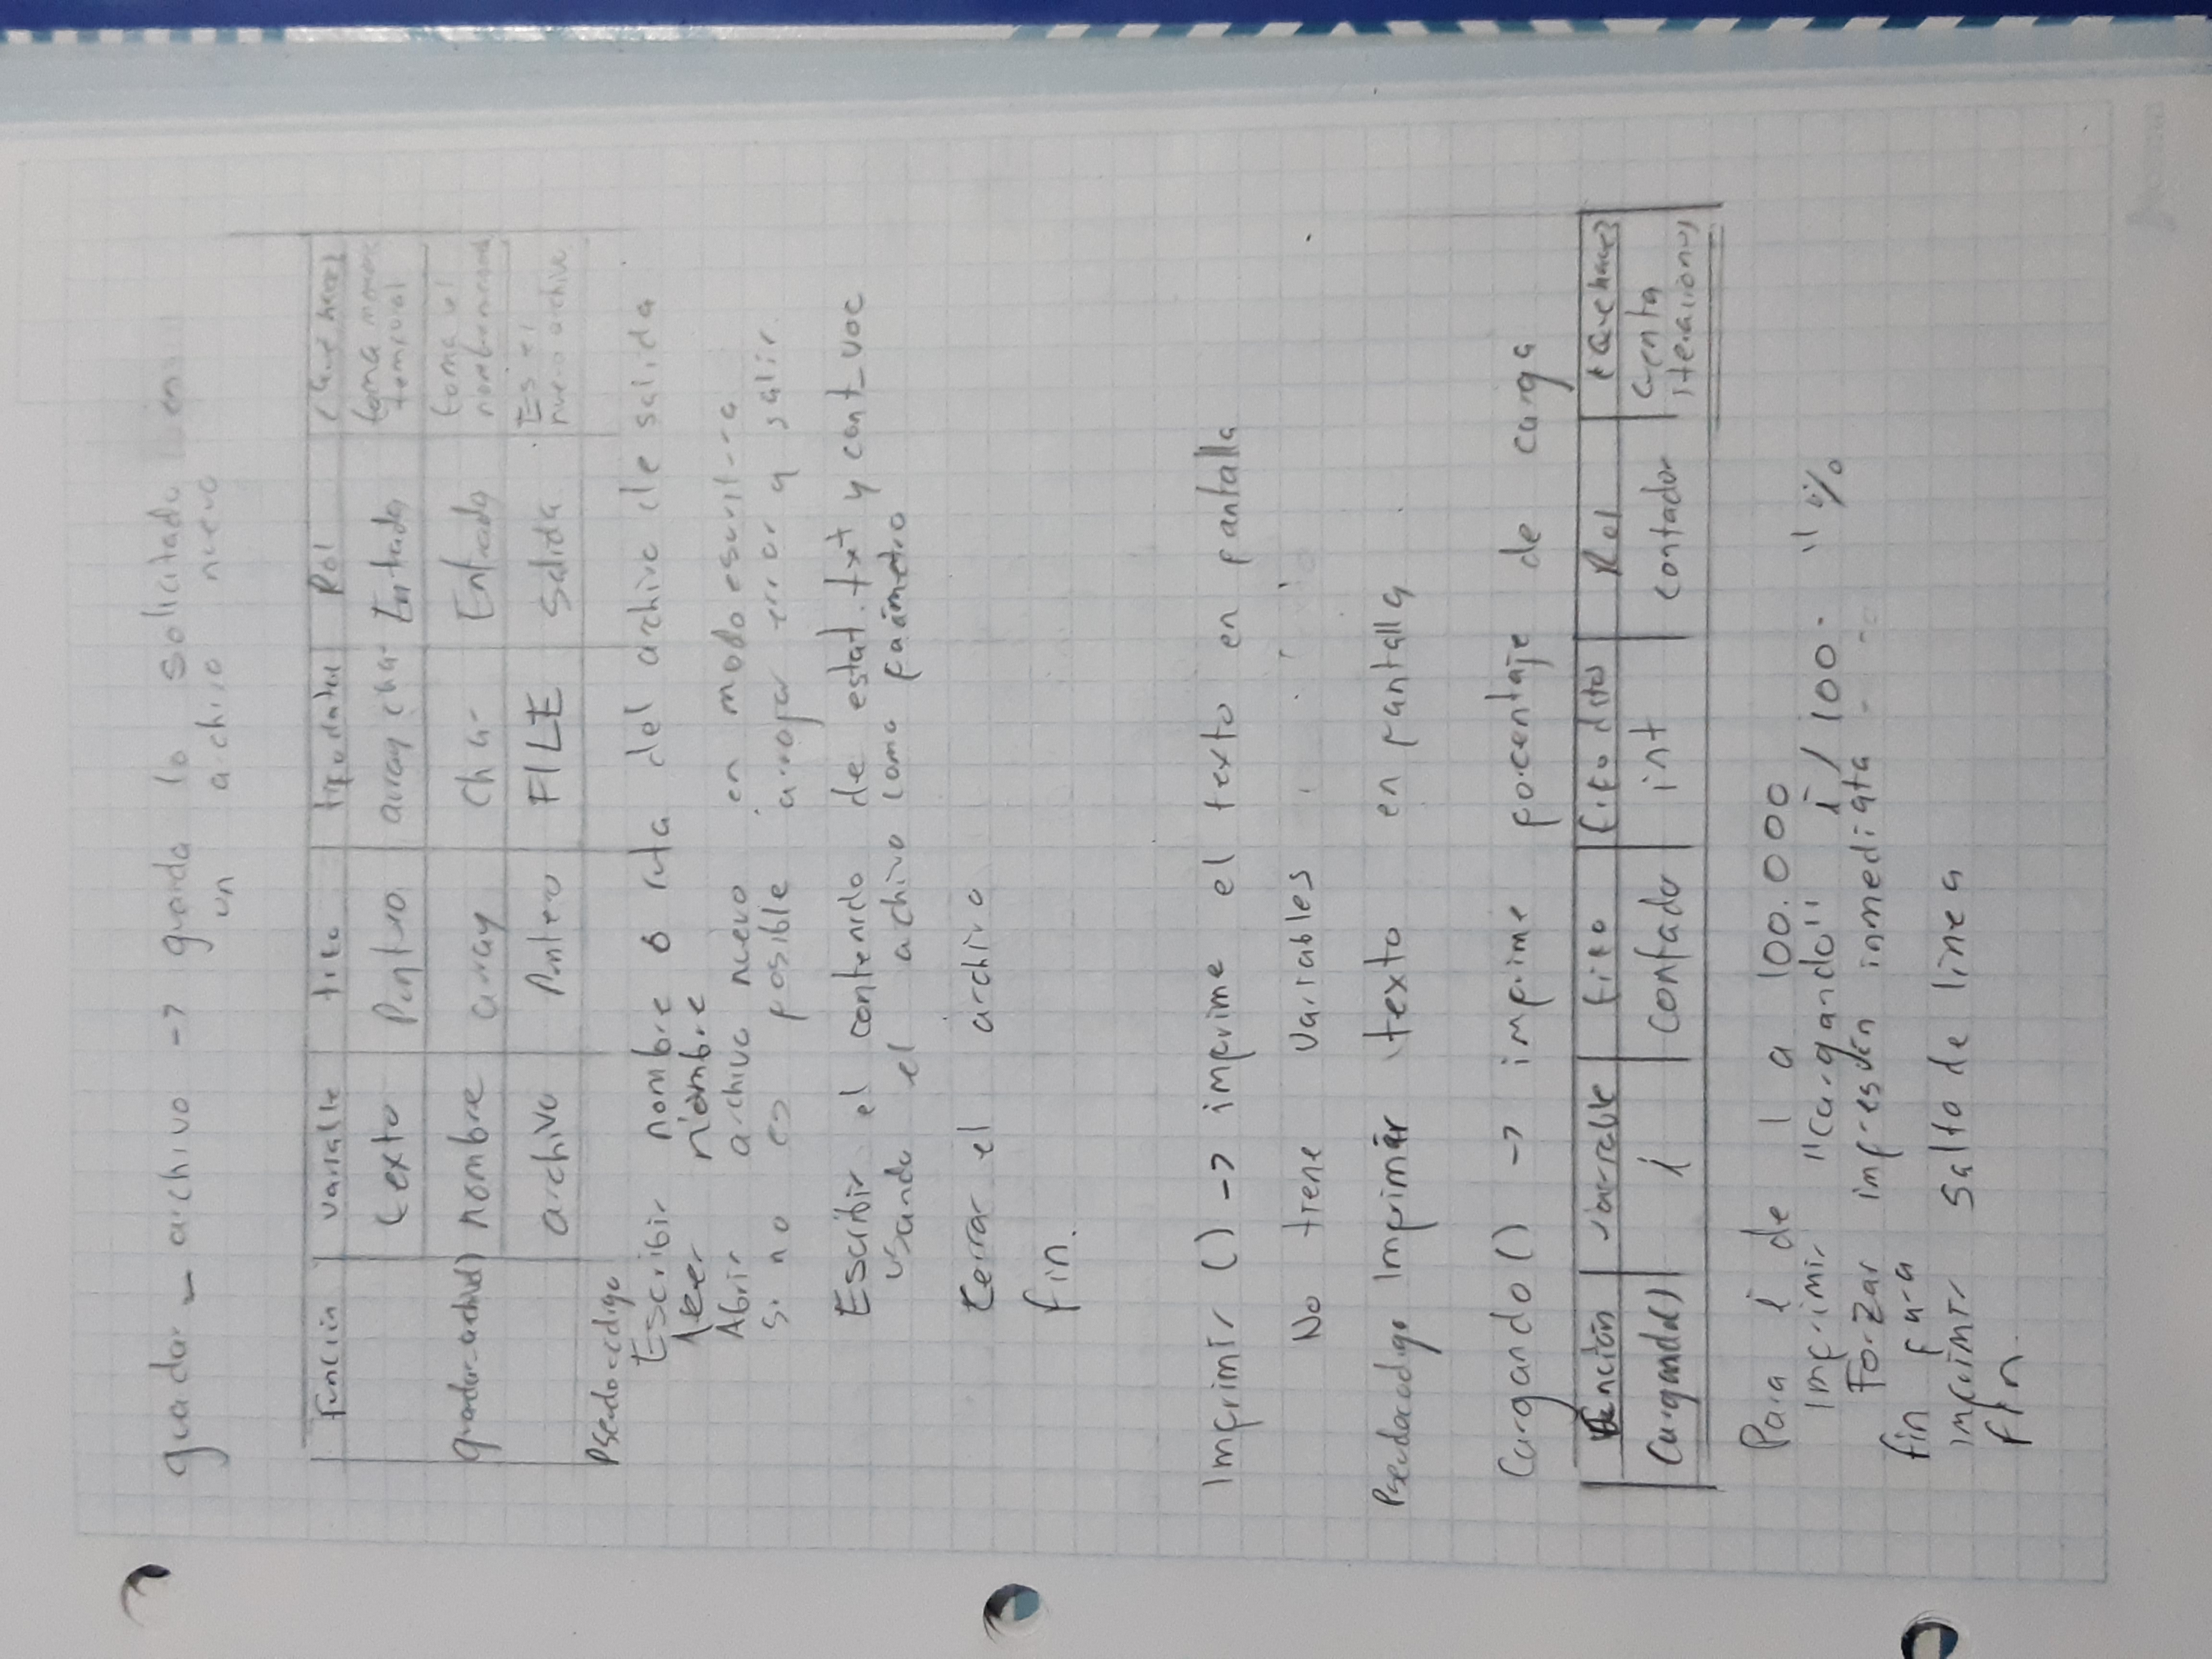 guadar_archivo -> guarda lo solicitado en
un archivo nuevo
Función variable tipo tipo datos Rol ¿Qué hace?
texto Puntero array char Entrada toma memoria temporal
guardar_archivo() nombre array char Entrada toma el nombre
archivo Puntero FILE Salida Es el nuevo archivo
Pseudocódigo
Escribir nombre o ruta del archivo de salida
leer nombre
Abrir archivo nuevo en modo escritura
si no es posible arrojar error y salir
Escribir el contenido de estat.txt y cont_voc
usando el archivo como parámetro
Cerrar el archivo
fin.
Imprimir () -> imprime el texto en pantalla
No tiene variables
Pseudocodigo Imprimir texto en pantalla
Cargando () -> imprime porcentaje de carga
Función variable tipo tipo datos Rol ¿Que hace?
Cargando() i contador int contador Cuenta iteraciones
Para i de 1 a 100.000
Imprimir "Cargando" i / 100. " %
Forzar impresión inmediata
fin para
imprimir salto de linea
fin.